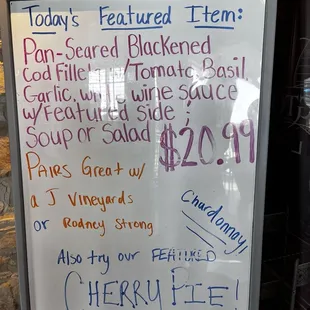 Today's Featured Item:
Pan-Seared Blackened
Cod Fillet w/Tomato Basil
Garlic, white wine sauce
w/Featured side &
Soup or Salad $20.99
PAIRS Great w/
a J Vineyards
or Rodney Strong
Chardonnay!
Also try our FEATURED
CHERRY PIE!